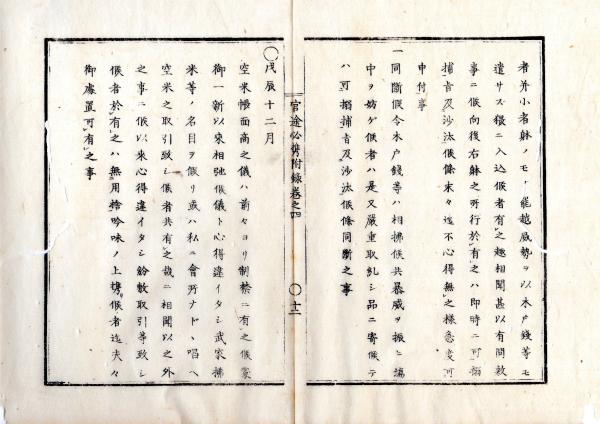 者并小者躰ノモノ罷越威勢ヲ以木戸錢等モ
遣サス猥ニ入込候者有之趣相聞甚以有間敷
事ニ候向後右躰之所行於有之ハ即時ニ可搦
捕旨及沙汰候條末々迄不心得無之様急度可
申付事
一同斷候令木戸錢等ハ相拂候共暴威ヲ振ヒ
中ヲ妨ケ候者ハ是又嚴重取糺シ品ニ寄候テ
ハ可搦捕旨及沙汰候條同斷之事
官途必携附錄卷之四
〇十二
〇戊辰十二月
空米帳面高之儀ハ前々ヨリ制禁ニ有之候處
御一新以來相弛候儀ト心得違イタシ武家拂
米等ノ名目ヲ假リ或ハ私ニ會所ナドヽ唱ヘ
空米之取引致シ候者共有之哉ニ相聞以之外
之事ニ候以來心得違イタシ紛敷取引等致シ
候者於有之ハ無用捨吟味ノ上携候者迄夫々
御處置可有之事